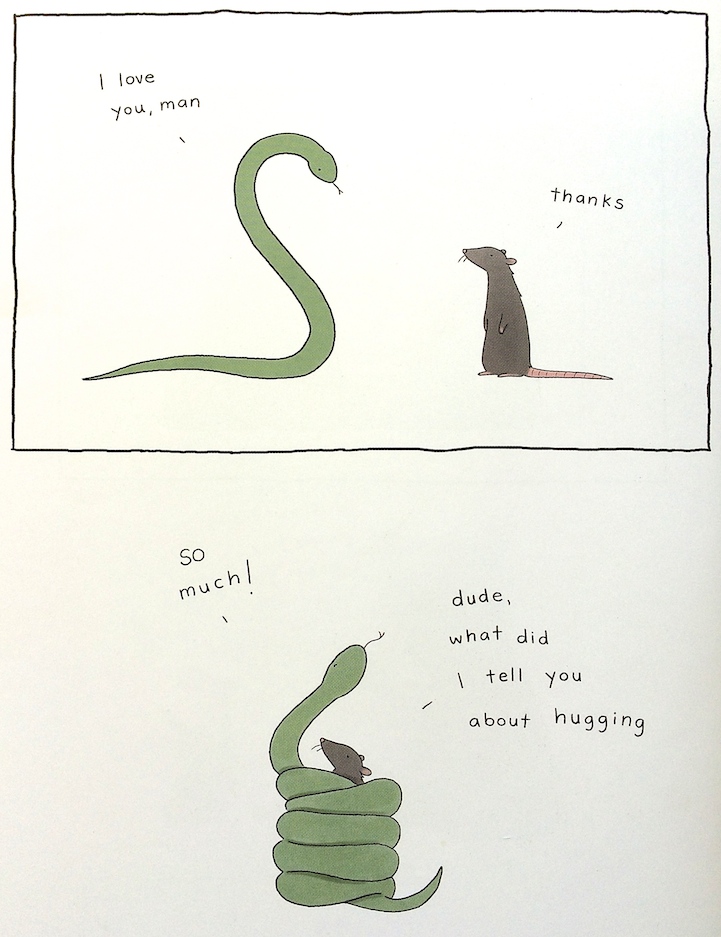 I love
you, man
thanks
so
much!
dude,
what did
I tell you
about hugging